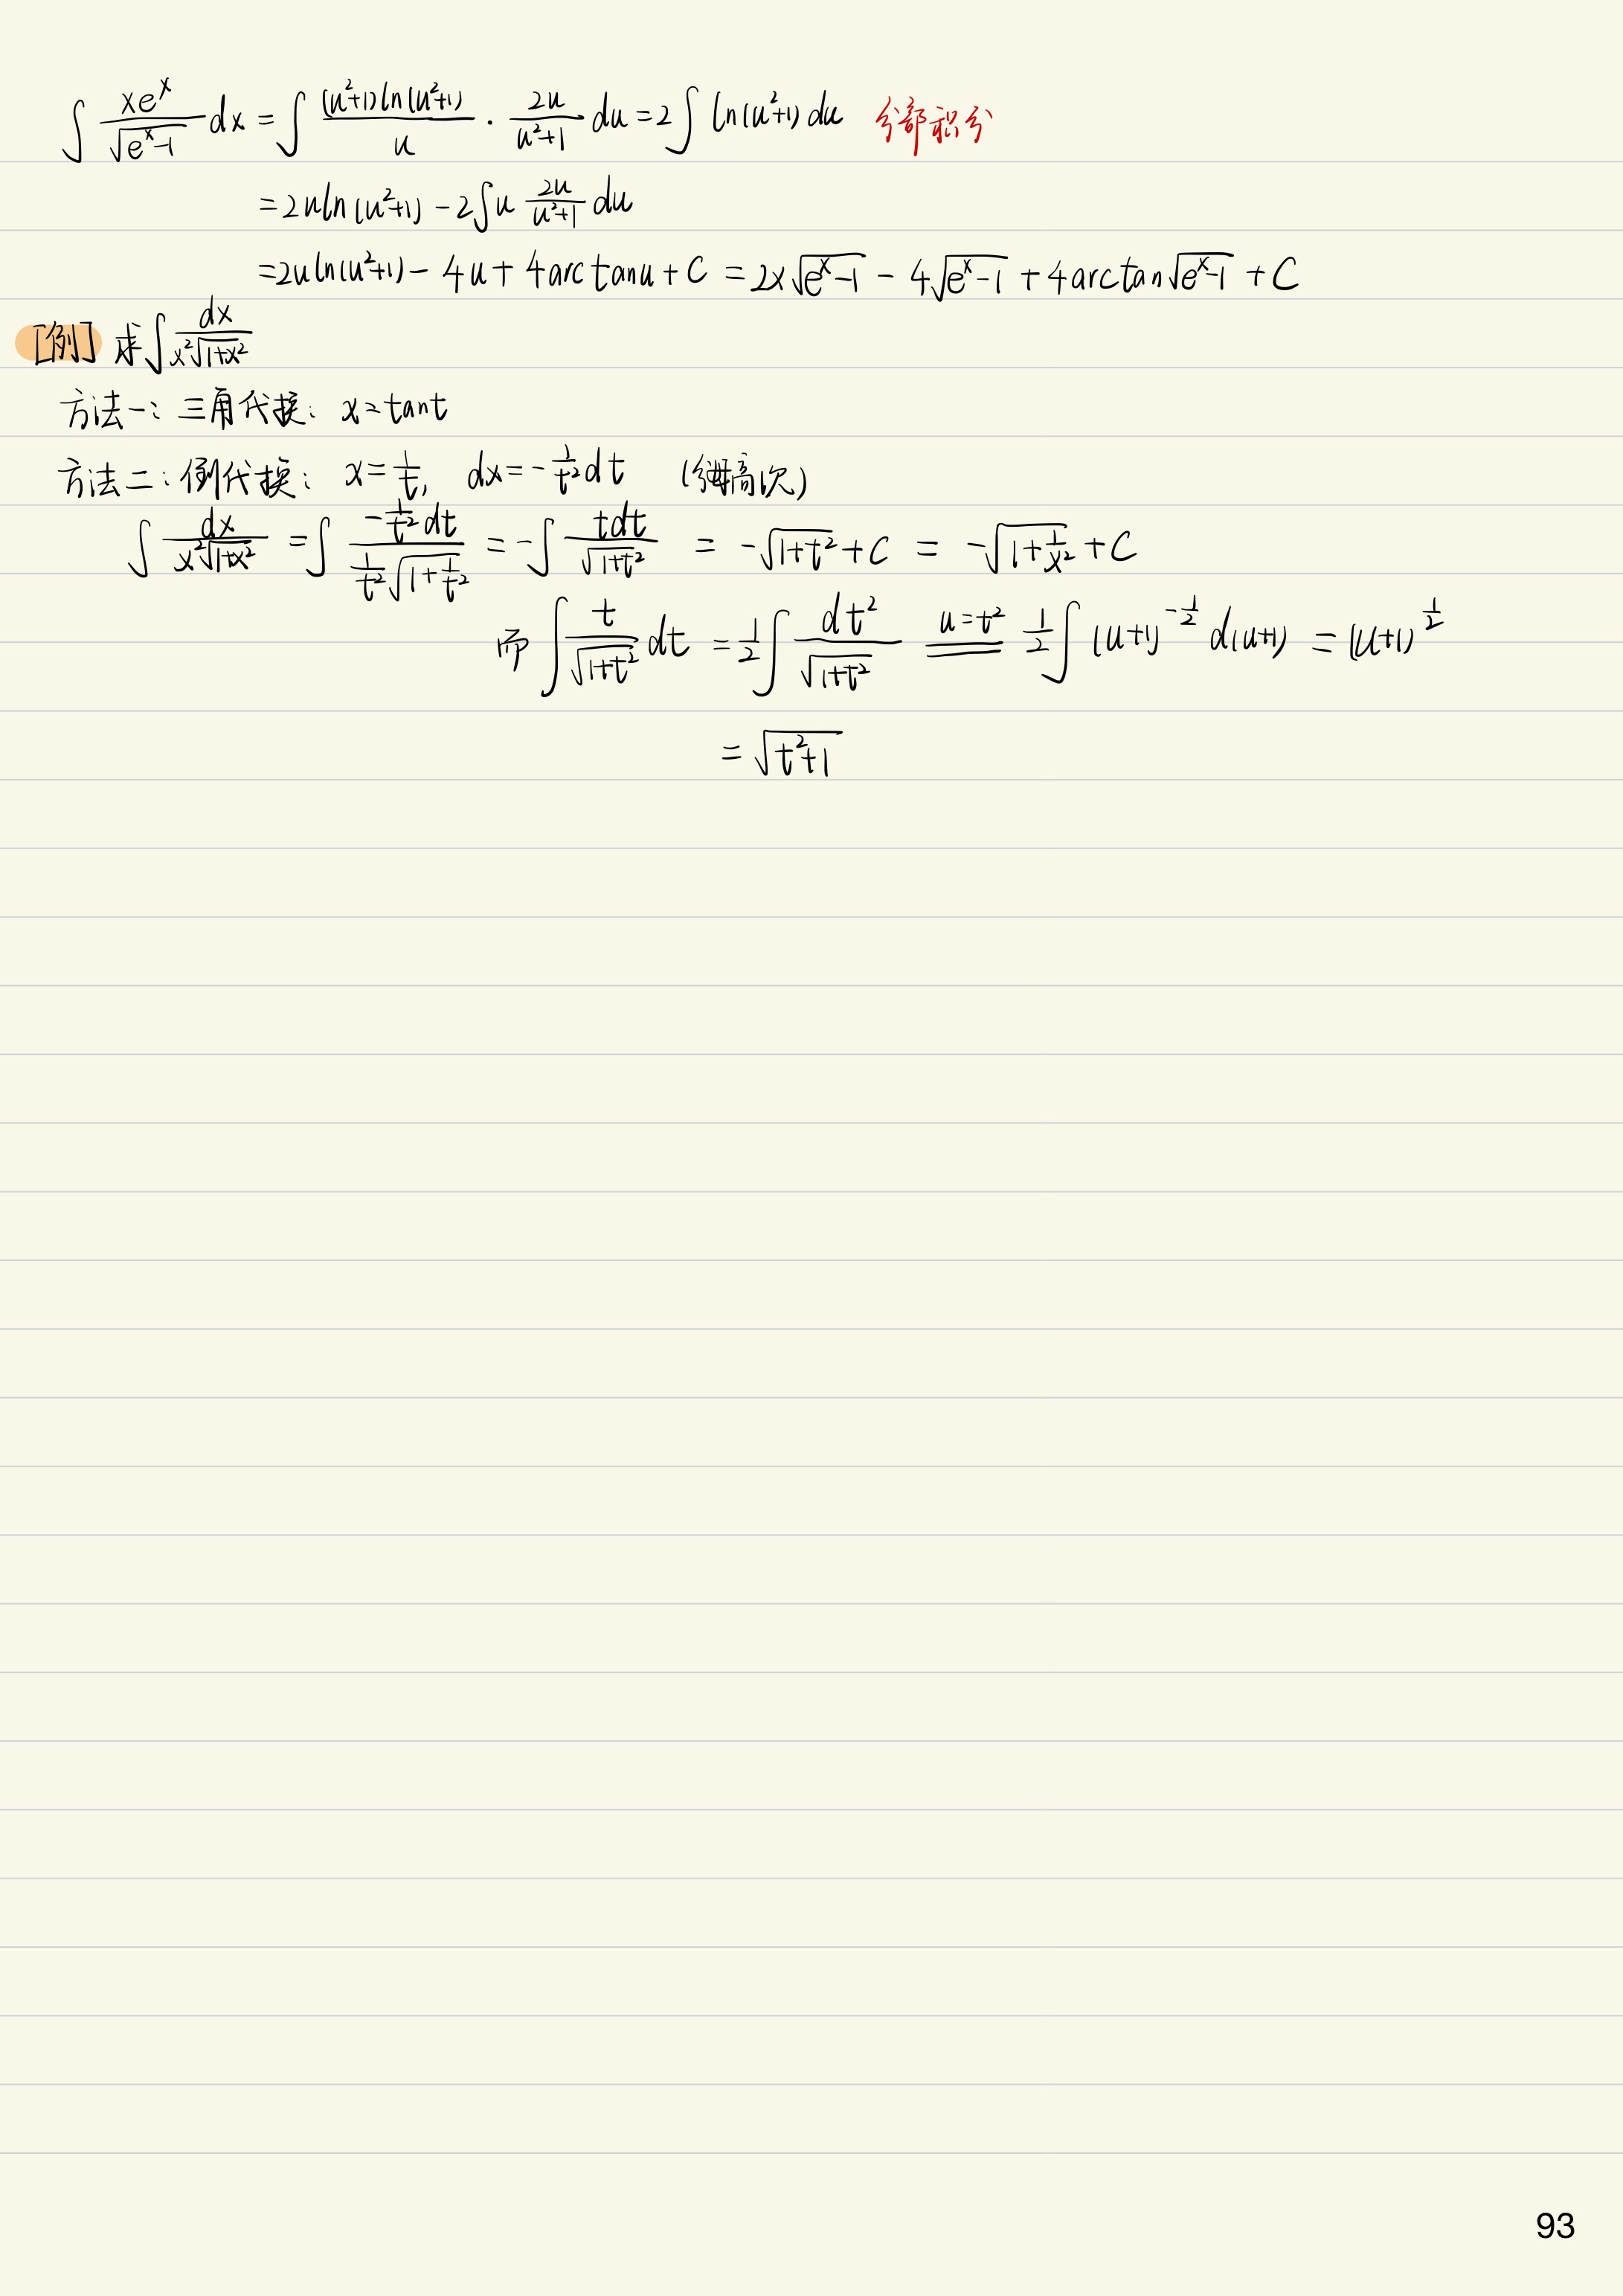 ∫ xe^x/√(e^x-1) dx = ∫ (u²+1)ln(u²+1)/u · 2u/(u²+1) du = 2∫ ln(u²+1) du 分部积分
= 2uln(u²+1) - 2∫u 2u/(u²+1) du
= 2uln(u²+1) - 4u + 4arctanu + C = 2x√(e^x-1) - 4√(e^x-1) + 4arctan√(e^x-1) + C
[例] 求∫ dx/(x²√(1+x²))
方法一: 三角代换: x=tant
方法二: 倒代换: x=1/t, dx=-1/t² dt (分母高次)
∫ dx/(x²√(1+x²)) = ∫ (-1/t² dt)/(1/t² √(1+1/t²)) = -∫ tdt/√(1+t²) = -√(1+t²) + C = -√(1+1/x²) + C
而 ∫ t/√(1+t²) dt = 1/2 ∫ dt²/√(1+t²) u=t² 1/2 ∫ (u+1)^(-1/2) d(u+1) = (u+1)^(1/2)
= √(t²+1)
93